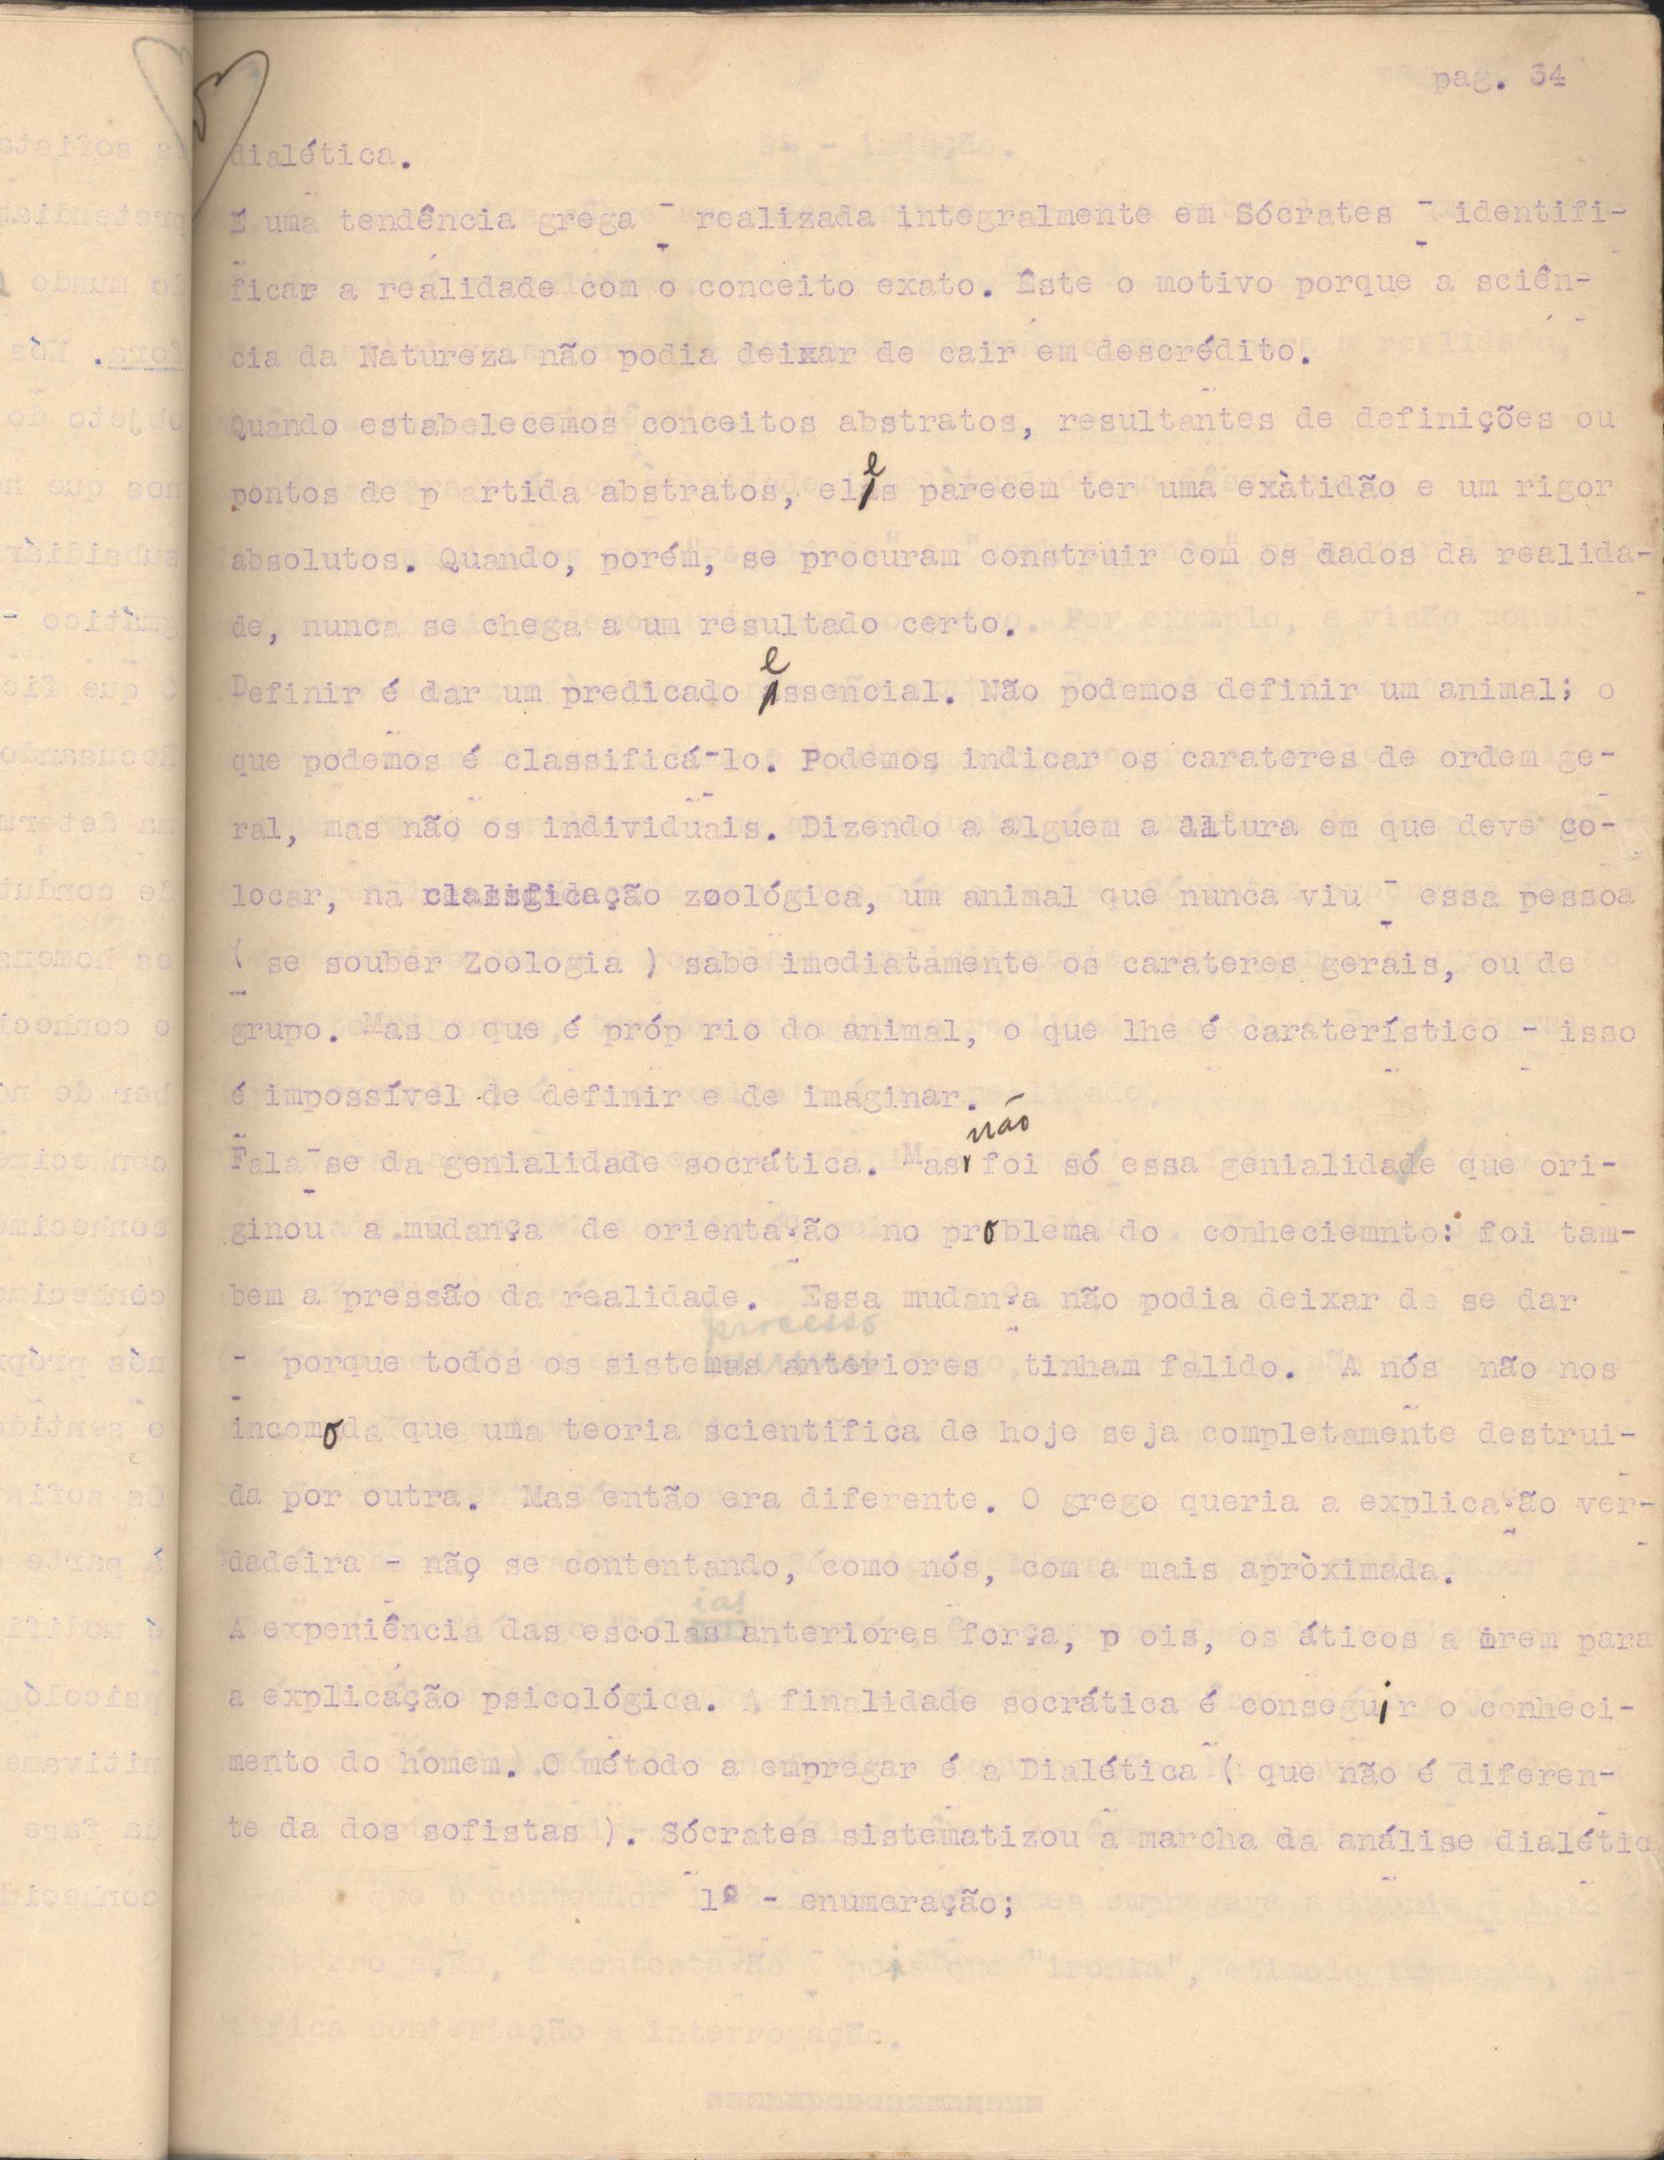 pag. 34
dialética.
É uma tendência grega - realizada integralmente em Sócrates - identifi-
ficar a realidade com o conceito exato. Êste o motivo porque a sciên-
cia da Natureza não podia deixar de cair em descrédito.
Quando estabelecemos conceitos abstratos, resultantes de definições ou
pontos de p artida abstratos, eles parecem ter uma exàtidão e um rigor
absolutos. Quando, porém, se procuram construir com os dados da realida-
de, nunca se chega a um resultado certo.
Definir é dar um predicado essencial. Não podemos definir um animal; o
que podemos é classificá-lo. Podemos indicar os carateres de ordem ge-
ral, mas não os individuais. Dizendo a alguem a altura em que deve co-
locar, na classificação zoológica, um animal que nunca viu - essa pessoa
( se souber Zoologia ) sabe imediatamente os carateres gerais, ou de
grupo. Mas o que é próp rio do animal, o que lhe é caraterístico - isso
é impossível de definir e de imaginar.
não
Fala-se da genialidade socrática. Mas foi só essa genialidade que ori-
ginou a mudança de orientação no problema do conheciemnto: foi tam-
bem a pressão da realidade. Essa mudança não podia deixar de se dar
- porque todos os sistemas anteriores tinham falido. A nós não nos
incomoda que uma teoria scientifica de hoje seja completamente destrui-
da por outra. Mas então era diferente. O grego queria a explicação ver-
dadeira - não se contentando, como nós, com a mais apròximada.
A experiência das escolas anteriores força, p ois, os áticos a irem para
a explicação psicológica. A finalidade socrática é conseguir o conheci-
mento do homem. O método a empregar é a Dialética ( que não é diferen-
te da dos sofistas ). Sócrates sistematizou a marcha da análise dialétic
1º - enumeração;